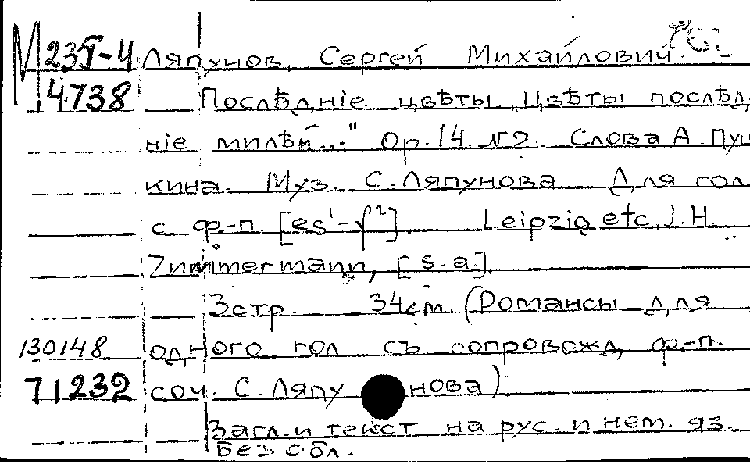 М 23I-4 Ляпунов, Сергей Михайлович.
4738 Послѣднiе цвѣты „Цвѣты послѣд
нiе милѣй..." Ор.14 №2. Слова А. Пуш
кина. Муз. С. Ляпунова. Для гол
с ф-п [es¹-f²]. Leipzig etc, J. H.
Zimmermann, [s.a.]
3стр 34см (Романсы для
130148 одного гол съ сопровожд. ф-п.
71232 соч. С. Ляпунова)
Загл. и текст на рус. и нем. яз.
Без обл.